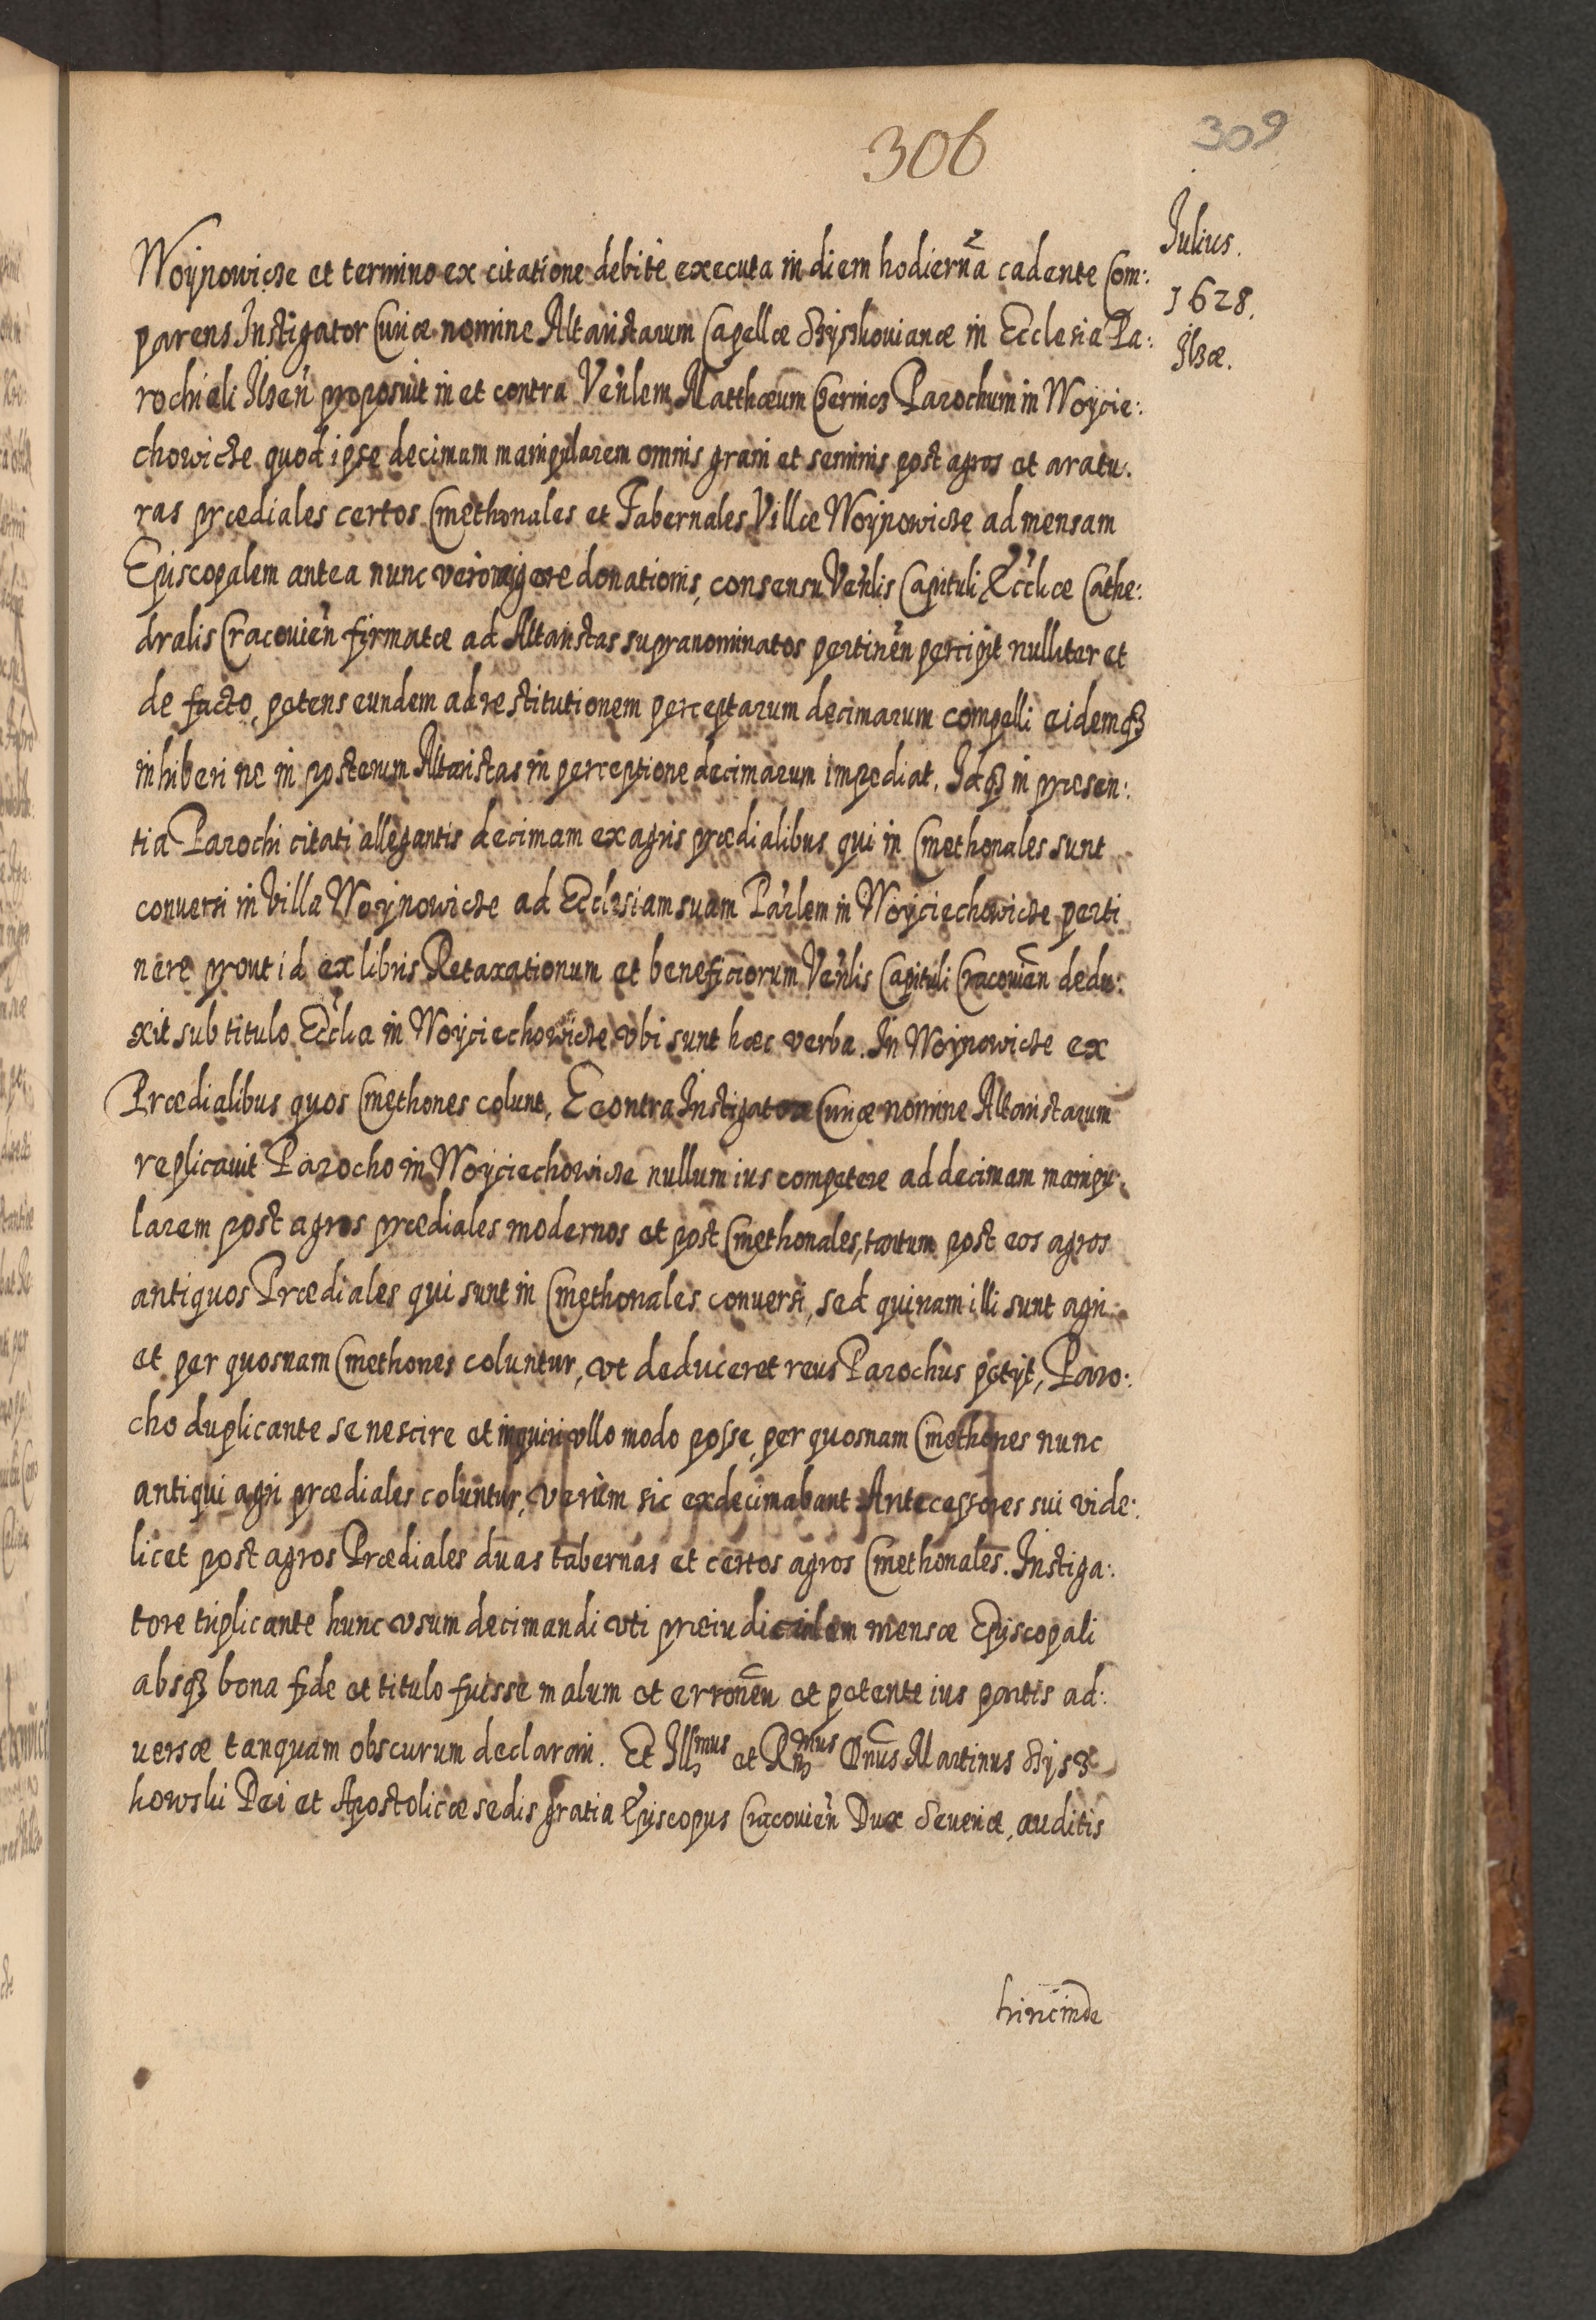 306
309
Iulius.
1628.
Ilzæ.
Woynowicze et termino ex citatione debite executa in diem hodierna cadente Com:
parens Instigator Curiæ nomine Altaristarum Capellæ Szyszkouianæ in Ecclesia Pa:
rochiali Ilzen proposuit in et contra Venlem Matthæum Parochum in Woycie:
chowicze quod ipse decimam manipularem omnis grani et seminis post agros et aratu:
ras prædiales certos Cmethonales et Tabernales Villæ Woynowicze ad mensam
Episcopalem antea nunc vero vigore donationis, consensu Venlis Capituli Eccliæ Cathe:
dralis Cracouien firmatæ ad Altaristas supranominatos pertinen percipit nulliter et
de facto, petens eundem ad restitutionem perceptarum decimarum compelli eidemq3
inhiberi ne in posterum Altaristas in perceptione decimarum impediat. Idq3 in presen:
tia Parochi citati allegantis decimam ex agris prædialibus qui in Cmethonales sunt
conuersi in Villa Woynowicze ad Ecclesiam suam Parlem in Woyciechowicze perti
nere prout id ex libris Retaxationum et beneficiorum Venlis Capituli Cracouien dedu:
xit sub titulo Ecclia in Woyciechowicze vbi sunt hæc verba. In Woynowicze ex
Prædialibus quos Cmethones colunt, E contra Instigatore Curiæ nomine Altaristarum
replicauit Parocho in Woyciechowicze nullum ius competere ad decimam manipu:
larem post agros prædiales modernos et post Cmethonales, tantum post eos agros
antiquos Prædiales qui sunt in Cmethonales conuersi, sed quinam illi sunt agri
et per quosnam Cmethones coluntur, vt deduceret reus Parochus petyt, Paro:
cho duplicante se nescire et inquiri vllo modo posse, per quosnam Cmethones nunc
antiqui agri prædiales coluntur, verùm sic exdecimabant Antecessores sui vide:
licet post agros Prædiales duas tabernas et certos agros Cmethonales. Instiga:
tore triplicante hunc vsum decimandi vti preiudicialem mensæ Episcopali
absq3 bona fide et titulo fuisse malum et erroneu et petente ius partis ad:
uersæ tanquam obscurum declarari. Et Illmus et Rndmus Dnus Martinus Szysz
kowski Dei et Apostolicæ sedis gratia Episcopus Cracouien Dux Seueriæ, auditis
hincinde